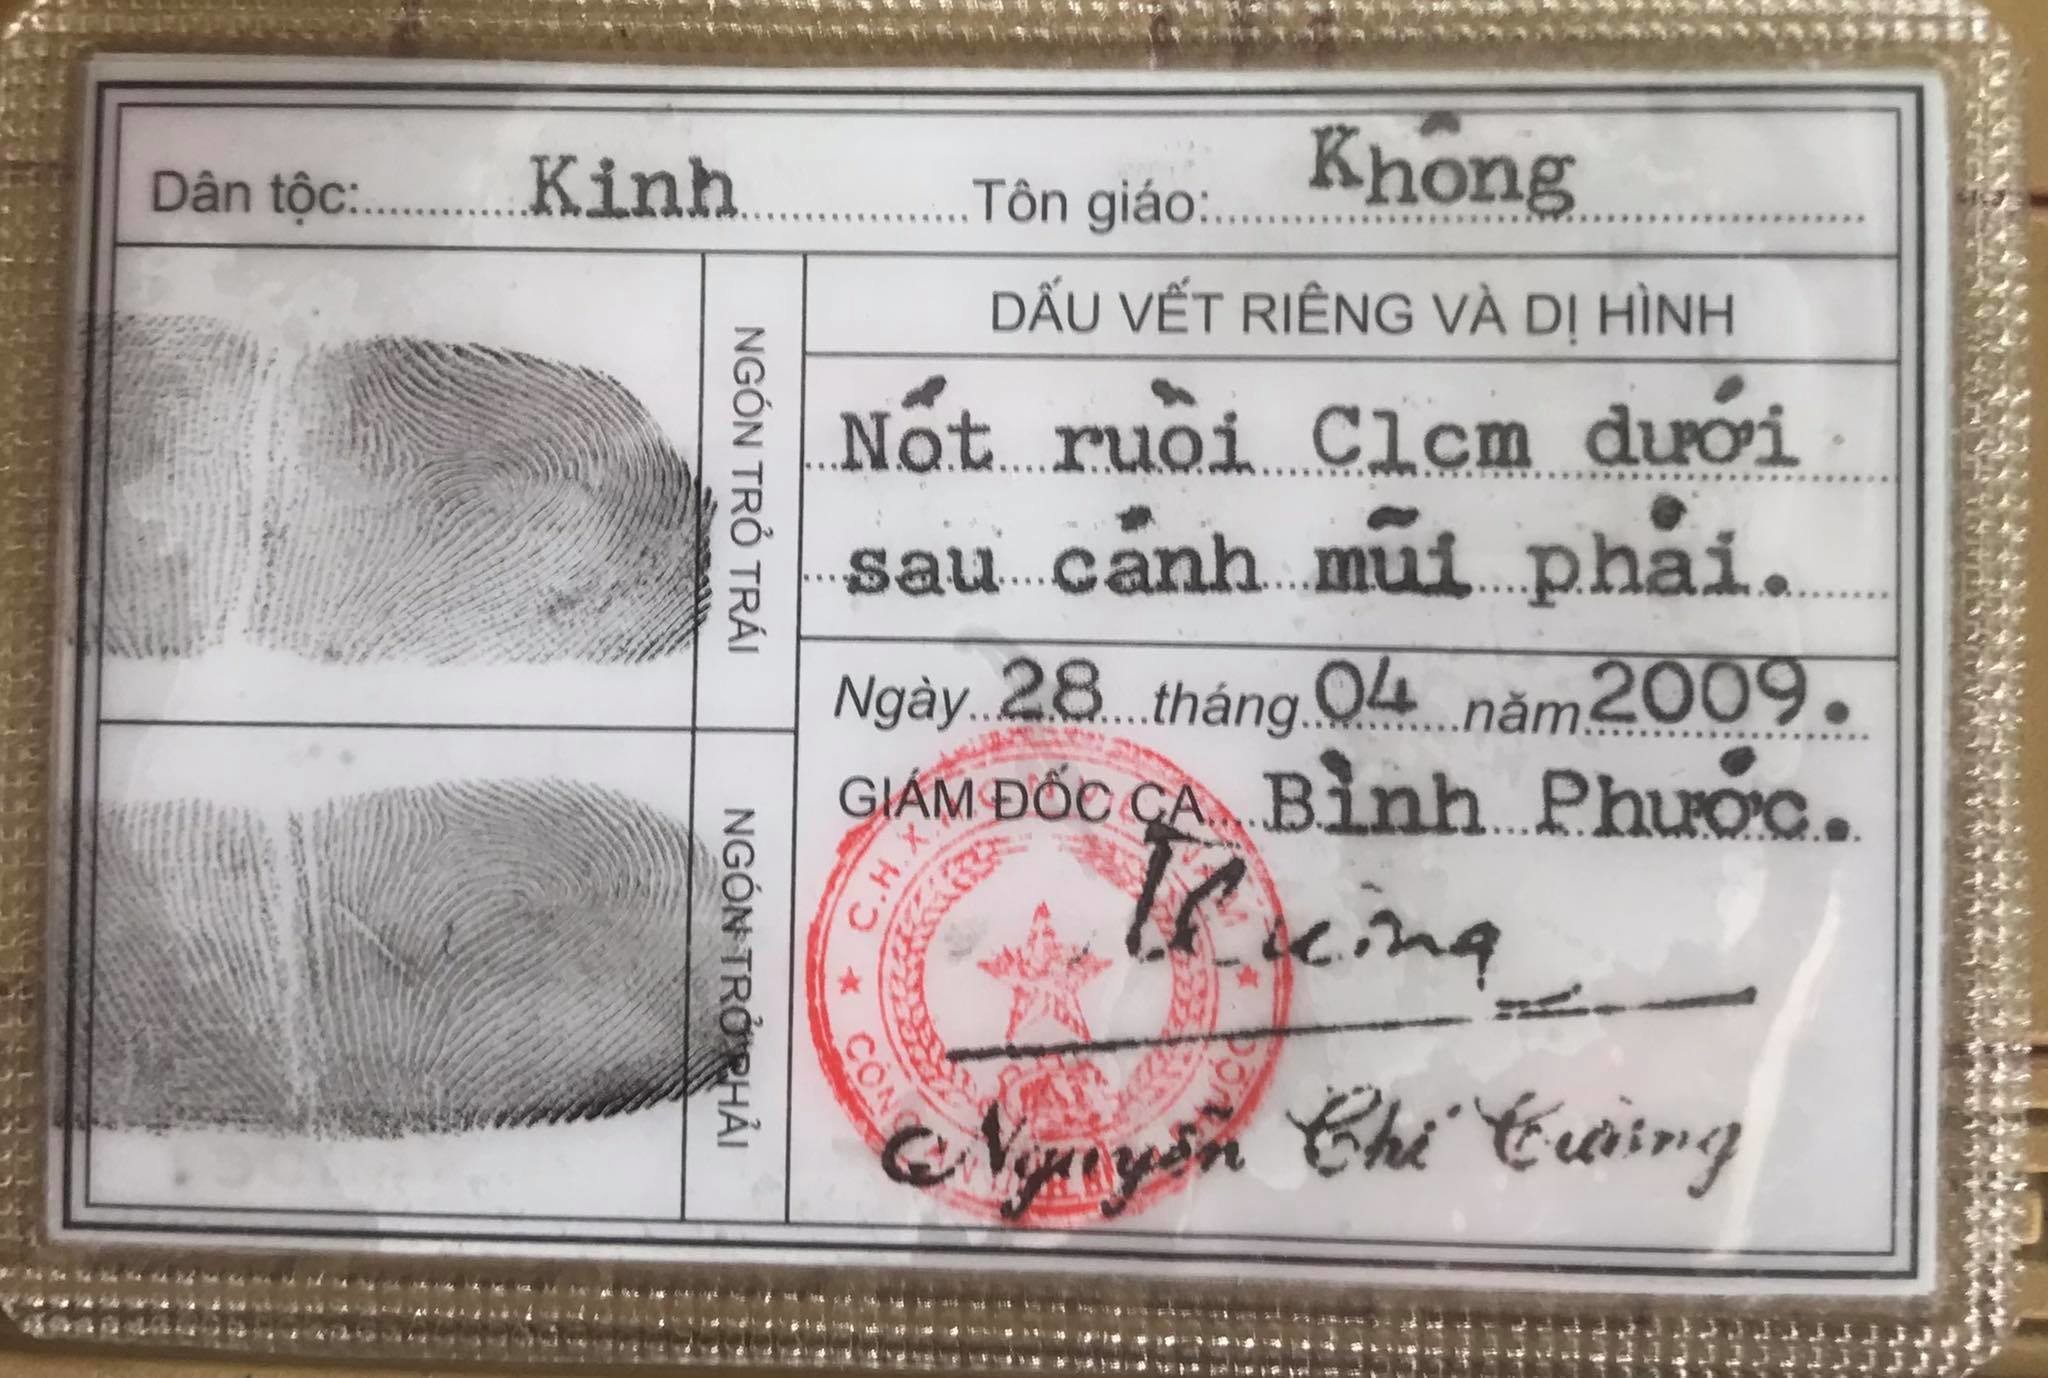 Dân tộc: Kinh Tôn giáo: Không
NGÓN TRỎ TRÁI
DẤU VẾT RIÊNG VÀ DỊ HÌNH
Nốt ruồi C1cm dưới
sau cánh mũi phải.
NGÓN TRỎ PHẢI
Ngày 28 tháng 04 năm 2009.
GIÁM ĐỐC CA Bình Phước.
C.H.X
CÔN
Nguyễn Chí Tường